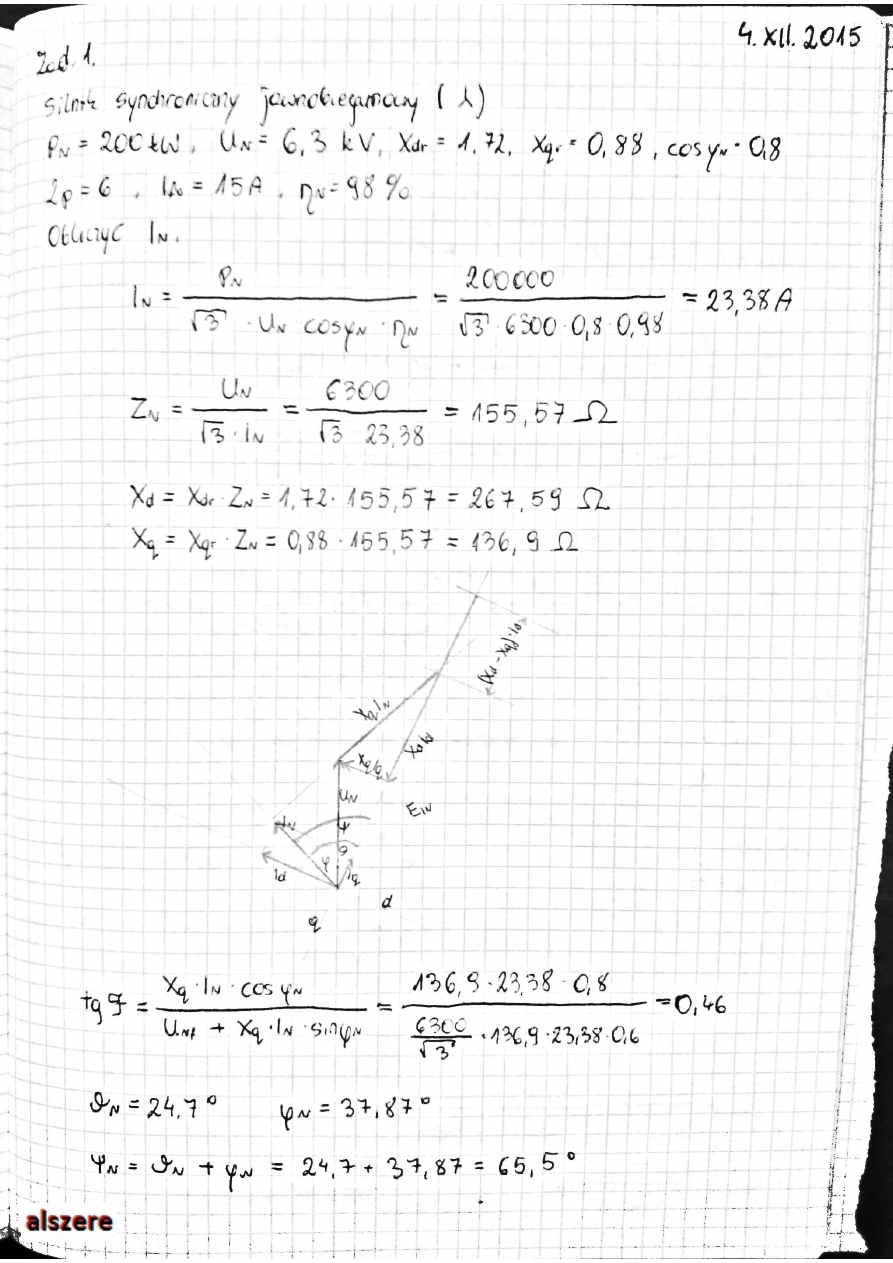 4. XII. 2015
Zad. 1.
Silnik synchroniczny jawnobiegunowy (⅄)
PN = 200 kW, UN = 6,3 kV, Xdr = 1,72, Xqr = 0,88, cosφN = 0,8
2p = 6, = 15A, ηN = 98 %
Obliczyć IN.
IN = PN / (√3 · UN cosφN · ηN) = 200000 / (√3 · 6300 · 0,8 · 0,98) = 23,38 A
ZN = UN / (√3 · IN) = 6300 / (√3 · 23,38) = 155,57 Ω
Xd = Xdr · ZN = 1,72 · 155,57 = 267,59 Ω
Xq = Xqr · ZN = 0,88 · 155,57 = 136,9 Ω
(Xd - Xq)·Id
XqIN
XdId
XqIq
UN
EIN
IN
ψ
ϑ
φ
Id
Iq
d
q
tg ϑ = (Xq · IN · cosφN) / (UNf + Xq · IN · sinφN) = (136,9 · 23,38 · 0,8) / (6300/√3 · 136,9 · 23,38 · 0,6) = 0,46
ϑN = 24,7° φN = 37,87°
ψN = ϑN + φN = 24,7 + 37,87 = 65,5°
alszere